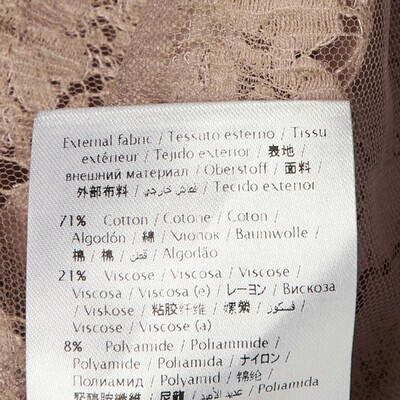 External fabric / Tessuto esterno / Tissu
extérieur / Tejido exterior / 表地 /
внешний материал / Oberstoff / 面料 /
外部布料 / قماش خارجي / Tecido exterior
71% Cotton / Cotone / Coton /
Algodón / 綿 / Хлопок / Baumwolle /
棉 / 棉 / قطن / Algodão
21% Viscose / Viscosa / Viscose /
Viscosa / Viscosa (e) / レーヨン / Вискоза
/ Viskose / 粘胶纤维 / 嫘縈 / فسكوز /
Viscose / Viscose (a)
8% Polyamide / Poliammide /
Polyamide / Poliamida / ナイロン /
Полиамид / Polyamid / 锦纶 /
聚醯胺纖維 / 尼龍 / عديد الأميد / Poliamida